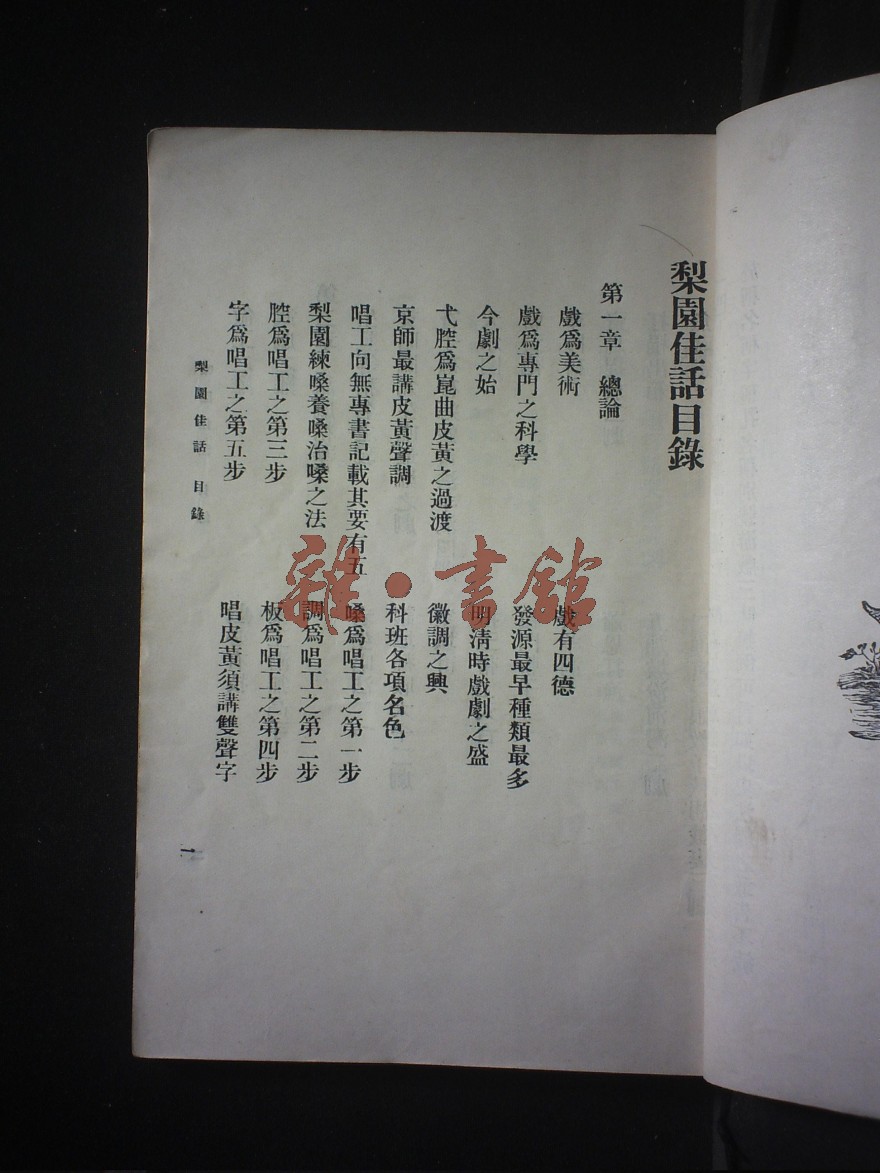 梨園佳話目錄
第一章　總論
戲爲美術
戲有四德
戲爲專門之科學
發源最早種類最多
今劇之始
明清時戲劇之盛
弋腔爲崑曲皮黃之過渡
徽調之興
京師最講皮黃聲調
科班各項名色
唱工向無專書記載其要有五
嗓爲唱工之第一步
梨園練嗓養嗓治嗓之法
調爲唱工之第二步
腔爲唱工之第三步
板爲唱工之第四步
字爲唱工之第五步
唱皮黃須講雙聲字
梨園佳話　目錄
一
雜·書館